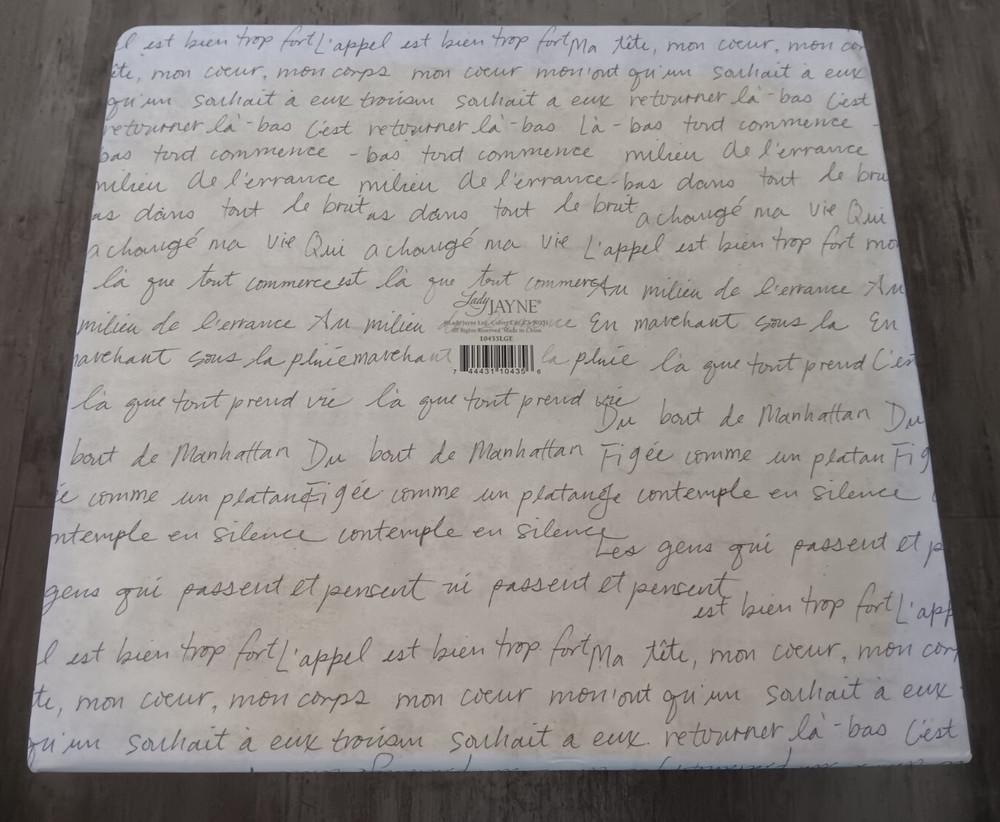 l est bien trop fort L'appel est bien trop fort Ma tête, mon coeur, mon cor
ête, mon coeur, mon corps mon coeur mon'ont qu'un souhait à eux
qu'un souhait à eux trouism souhait a eux retourner là-bas C'est
retourner là-bas C'est retourner là-bas Là-bas tout commence -
bas tout commence - bas tout commence milieu de l'errance
milieu de l'errance milieu de l'errance-bas dans tout le bru
as dans tout le brut as dans tout le brut a changé ma vie Qui
a changé ma vie Qui a changé ma vie L'appel est bien trop fort mo
là que tout commerce est là que tout commerce Au milieu de l'errance Au
Lady JAYNE®
milieu de l'errance Au milieu ce En marchant sous la En
All Rights Reserved Made in China
10435LGE
marchant sous la pluie marchant la pluie là que tout prend C'es
7 44431 10435 6
là que tout prend vie là que tout prend vie
Du bout de Manhattan Du
bout de Manhattan Du bout de Manhattan Figée comme un platan Fig
e comme un platane Figée comme un platane Je contemple en silence
ntemple en silence contemple en silence
Les gens qui passent et p
gens qui passent et pensent ui passent et pensent
est bien trop fort L'app
l est bien trop fort L'appel est bien trop fort Ma tête, mon coeur, mon cor
te, mon coeur, mon corps mon coeur mon'ont qu'un souhait à eux
qu'un souhait à eux trouism souhait a eux retourner là-bas C'est